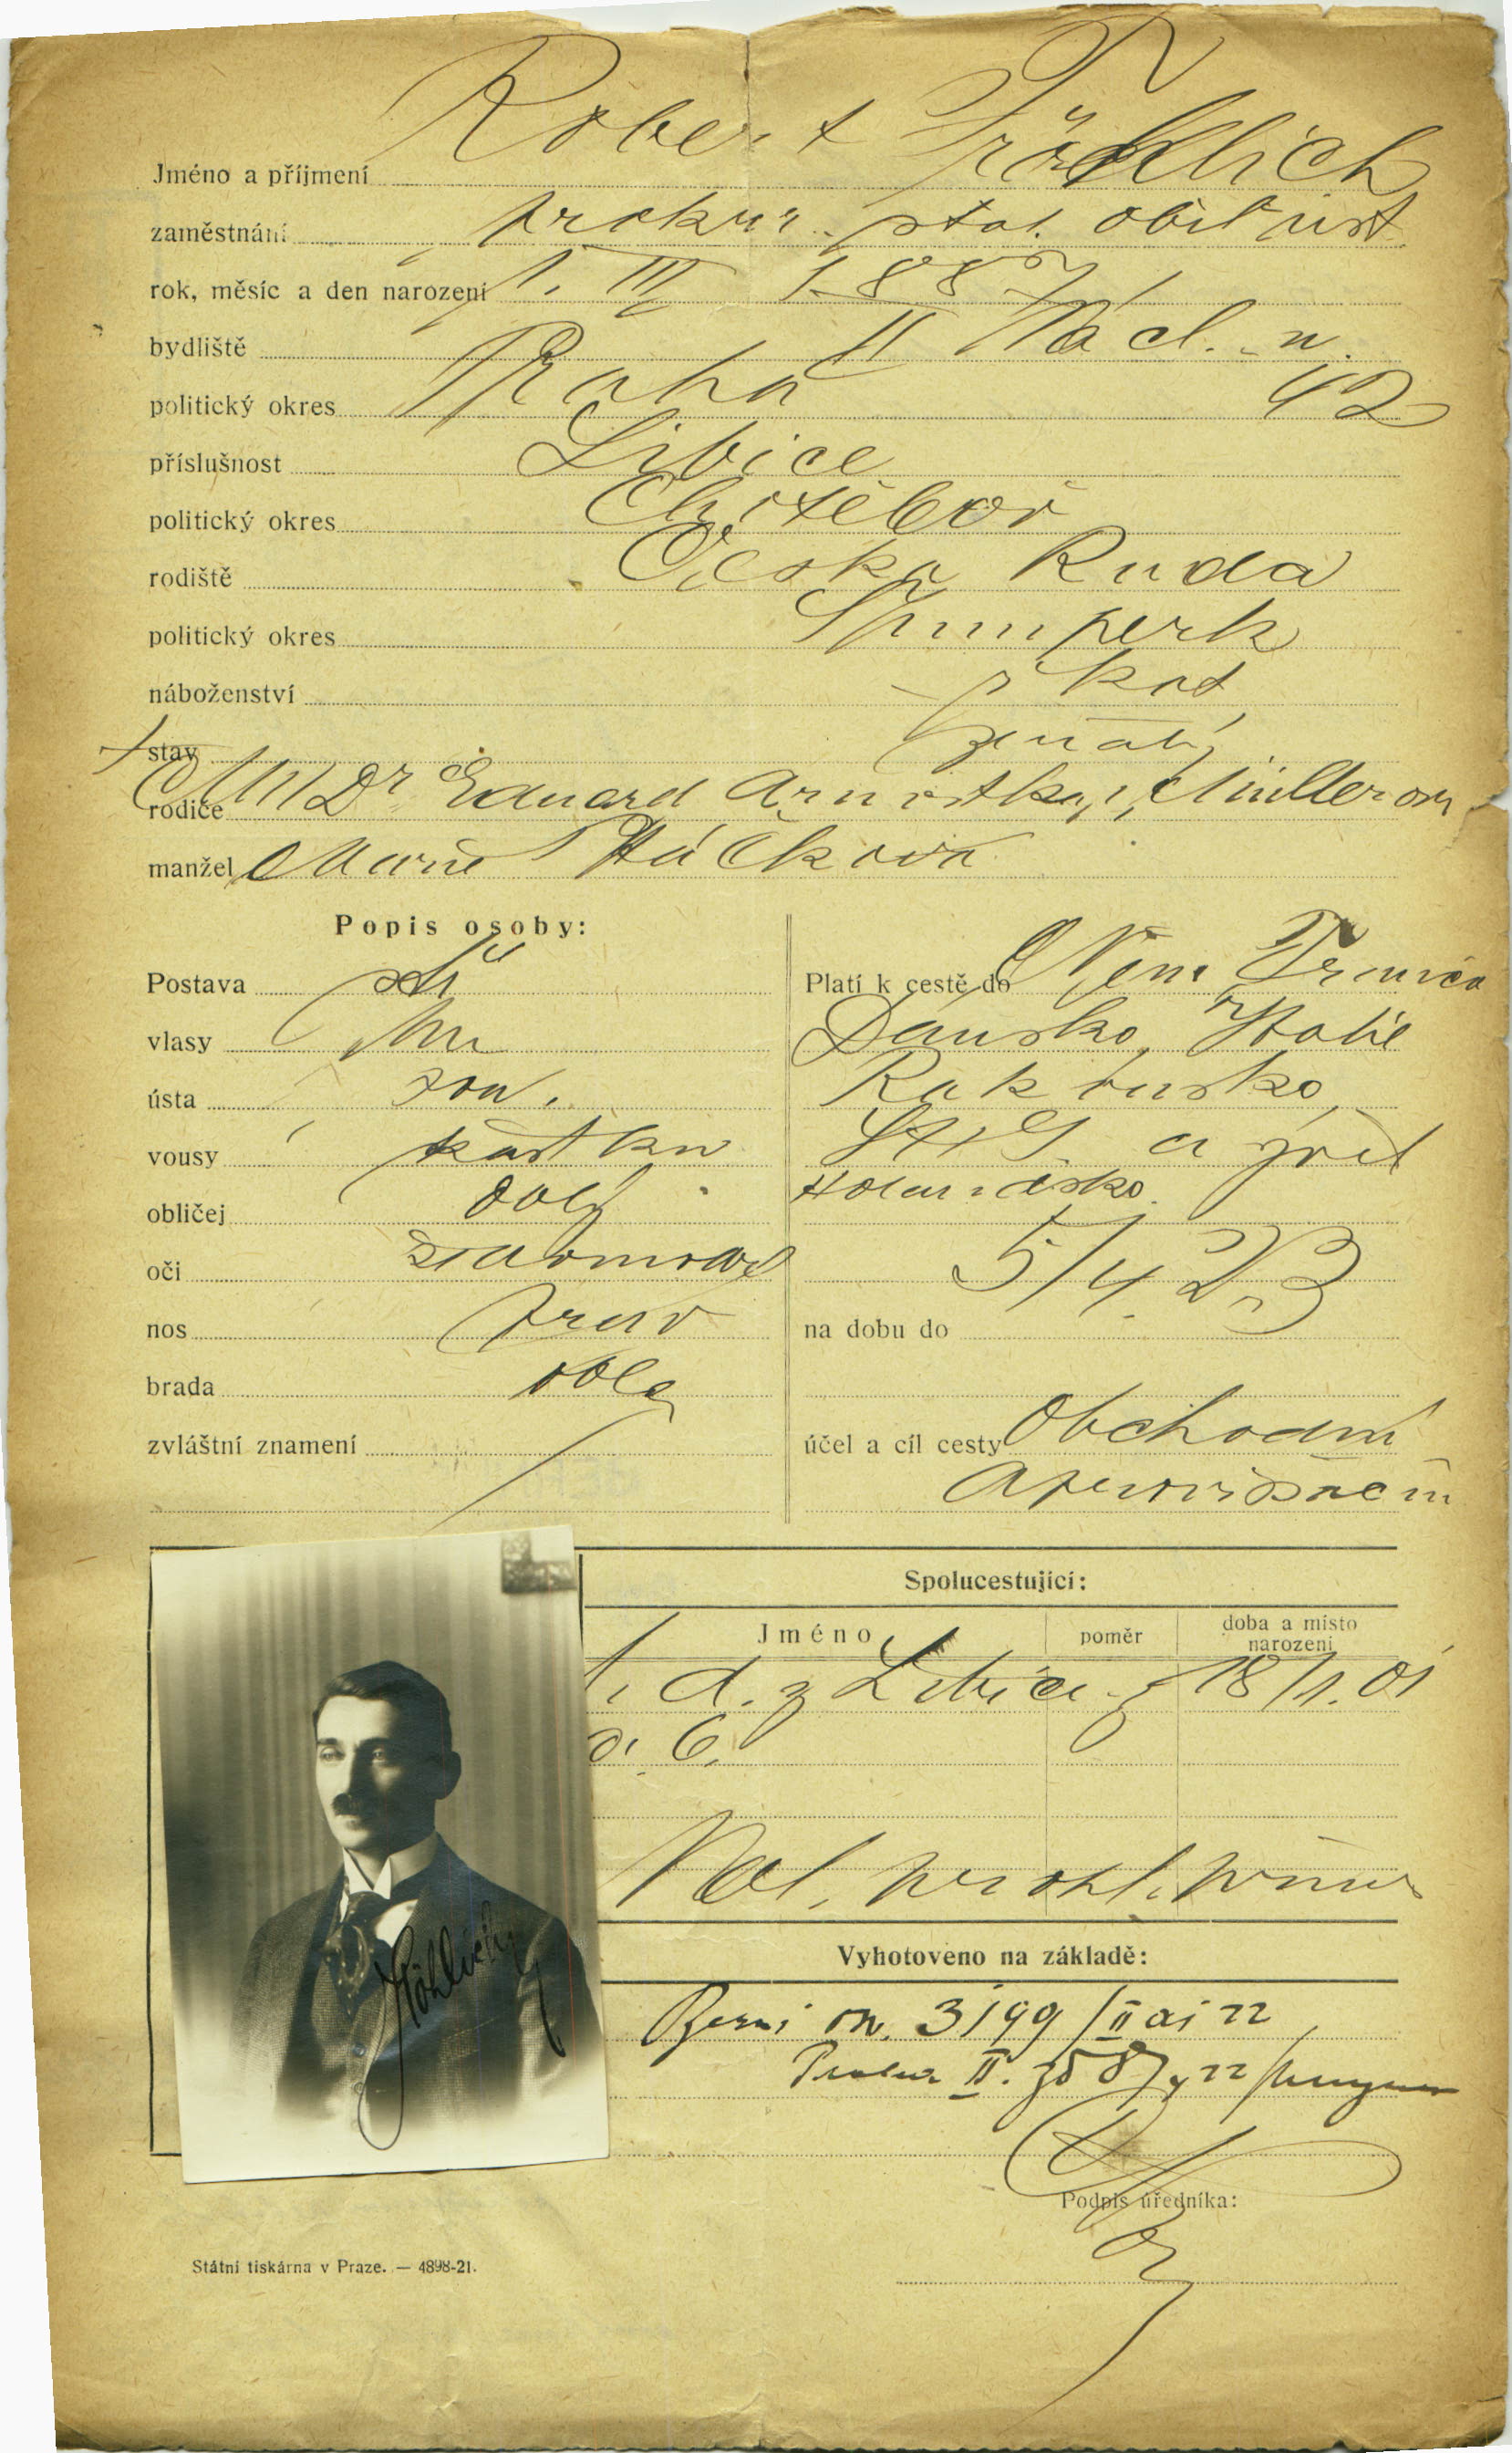 Jméno a příjmení Robert Fröhlich
zaměstnání prokur. stát. obil. úst.
rok, měsíc a den narození 1. III 1887
bydliště II Václ. n.
politický okres Praha 42
příslušnost Libice
politický okres Chotěboř
rodiště Česká Ruda
politický okres Šumperk
náboženství ř kat
stav ženatý
rodiče MUDr Eduard Arnoštka, Müllerová
manžel Marie
Popis osoby:
Postava stř
vlasy
ústa soum.
vousy
obličej obl
oči
nos prav
brada oblá
zvláštní znamení /
Platí k cestě do Něm. Francie
Dánsko, Italie
Rakousko,
a zpět
Holandsko.
5/4. 23
na dobu do
účel a cíl cesty Obchodní
aprovisační
Spolucestující:
Jméno poměr doba a místo narození
1. d. z Libice 18/1. 01
č. 6.
Fröhlich
Vyhotoveno na základě:
3199/II ai 22
Praha II.
Podpis úředníka:
Státní tiskárna v Praze. — 4898-21.